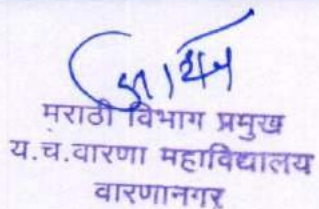 मराठी विभाग प्रमुख
य.च.वारणा महाविद्यालय
वारणानगर